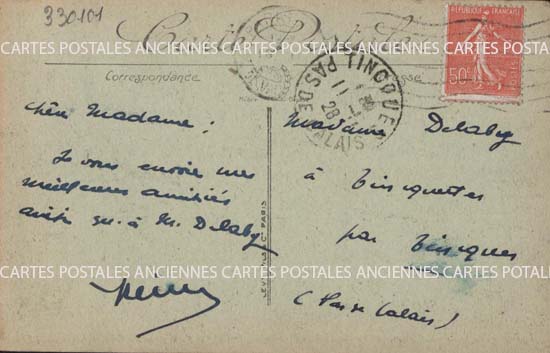 330101
Carte Postale
RÉPUBLIQUE FRANÇAISE
50c
POSTES
CARTES POSTALES ANCIENNES CARTES POSTALES ANCIENNES CARTES POSTALES ANCIENNES
Correspondance
Adresse
TINCQUES
PAS DE CALAIS
11
28
Chère Madame,
Je vous envoie mes
meilleures amitiés
ainsi qu'à M. Delaby
Madame Delaby
à Tincquettes
par Tincques
(Pas de Calais)
LEVY FILS & Cie PARIS
CARTES POSTALES ANCIENNES CARTES POSTALES ANCIENNES CARTES POSTALES ANCIENNES